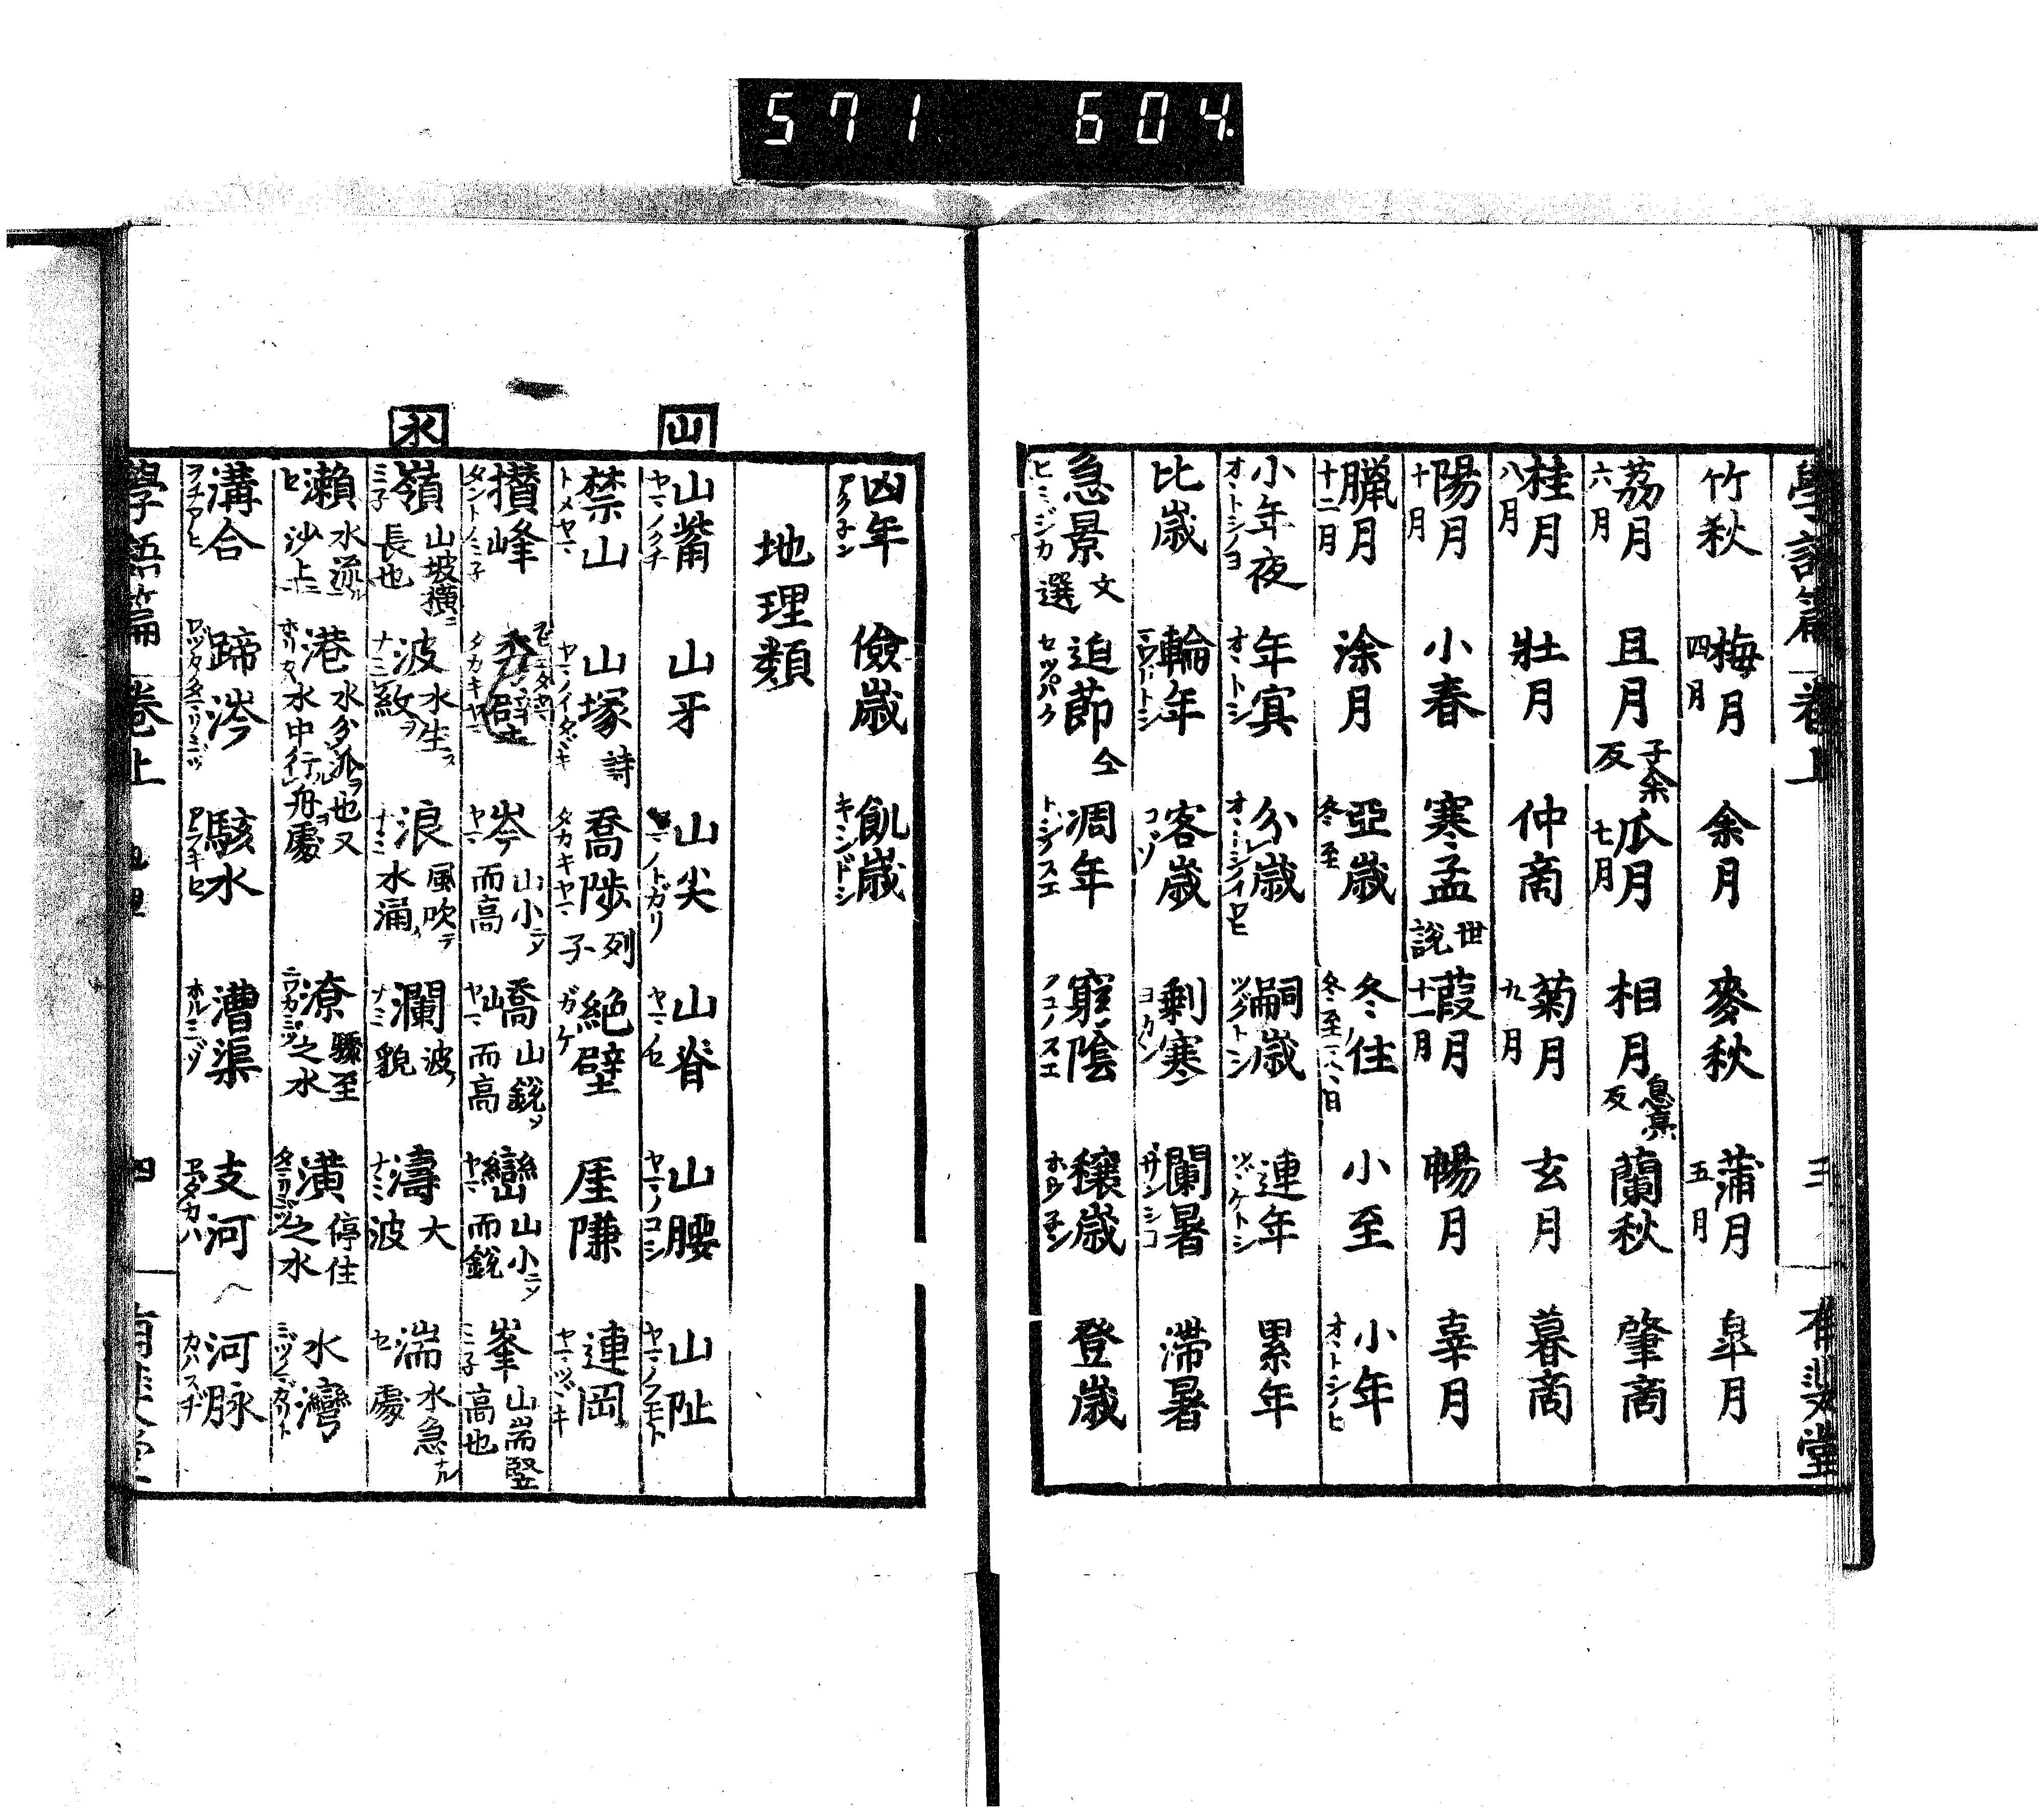 571 604
學語篇 卷上 三
竹秋 梅月 四月 余月 麥秋 蒲月 五月 皐月
荔月 六月 且月 子余反 瓜月 七月 相月 息亮反 蘭秋 肇商
桂月 八月 壯月 仲商 菊月 九月 玄月 暮商
陽月 十月 小春 寒孟 世說 葭月 十一月 暢月 辜月
臘月 十二月 涂月 亞歲 冬至 冬住 小至 小年 オヽトシノヒ
小年夜 オヽトシノヨ 年寅 オヽトシ 分歲 嗣歲 ツグトシ 連年 ツヾケトシ 累年
比歲 輪年 客歲 コゾ 剩寒 ヨカン 闌暑 ザンシヨ 滯暑
急景 ヒミジカ 文選 迫節 セツパク 仝 凋年 トシノスエ 窮陰 フユノスエ 穰歲 ホウ子ン 登歲
凶年 アク子ン 儉歲 飢歲 キヽンドシ
地理類
山
山觜 ヤマノクチ 山牙 山尖 ヤマノトガリ 山脊 山腰 ヤマノコシ 山趾 ヤマノフモト
禁山 トメヤマ 山塚 ヤマノイタヾキ 詩 喬陟 タカキヤマ 列子 絶壁 ガケ 厓隒 連岡 ヤマツヾキ
攢峰 岑 ヤマ 山小ニシテ而高 嶠 ヤマ 山銳而高 巒 ヤマ 山小ニシテ而銳 峯 ミ子 山耑竪高也
水
嶺 ミ子 山坡橫ニ長也 波 ナミ 水生ス紋ヲ 浪 ナミ 風吹テ水涌 瀾 ナミ 波貌 濤 ナミ 大波 湍 セ 水急ナル處
瀨 セ 水流ル沙上ニ 港 水分派也又水中行ル舟處 潦 ニワカミヅ 驟至之水 潢 タマリミヅ 停住之水 水灣
溝合 蹄涔 駭水 漕渠 ホルミヅ 支河 ヱダカハ 河脉 カハスヂ
學語篇 卷上 四